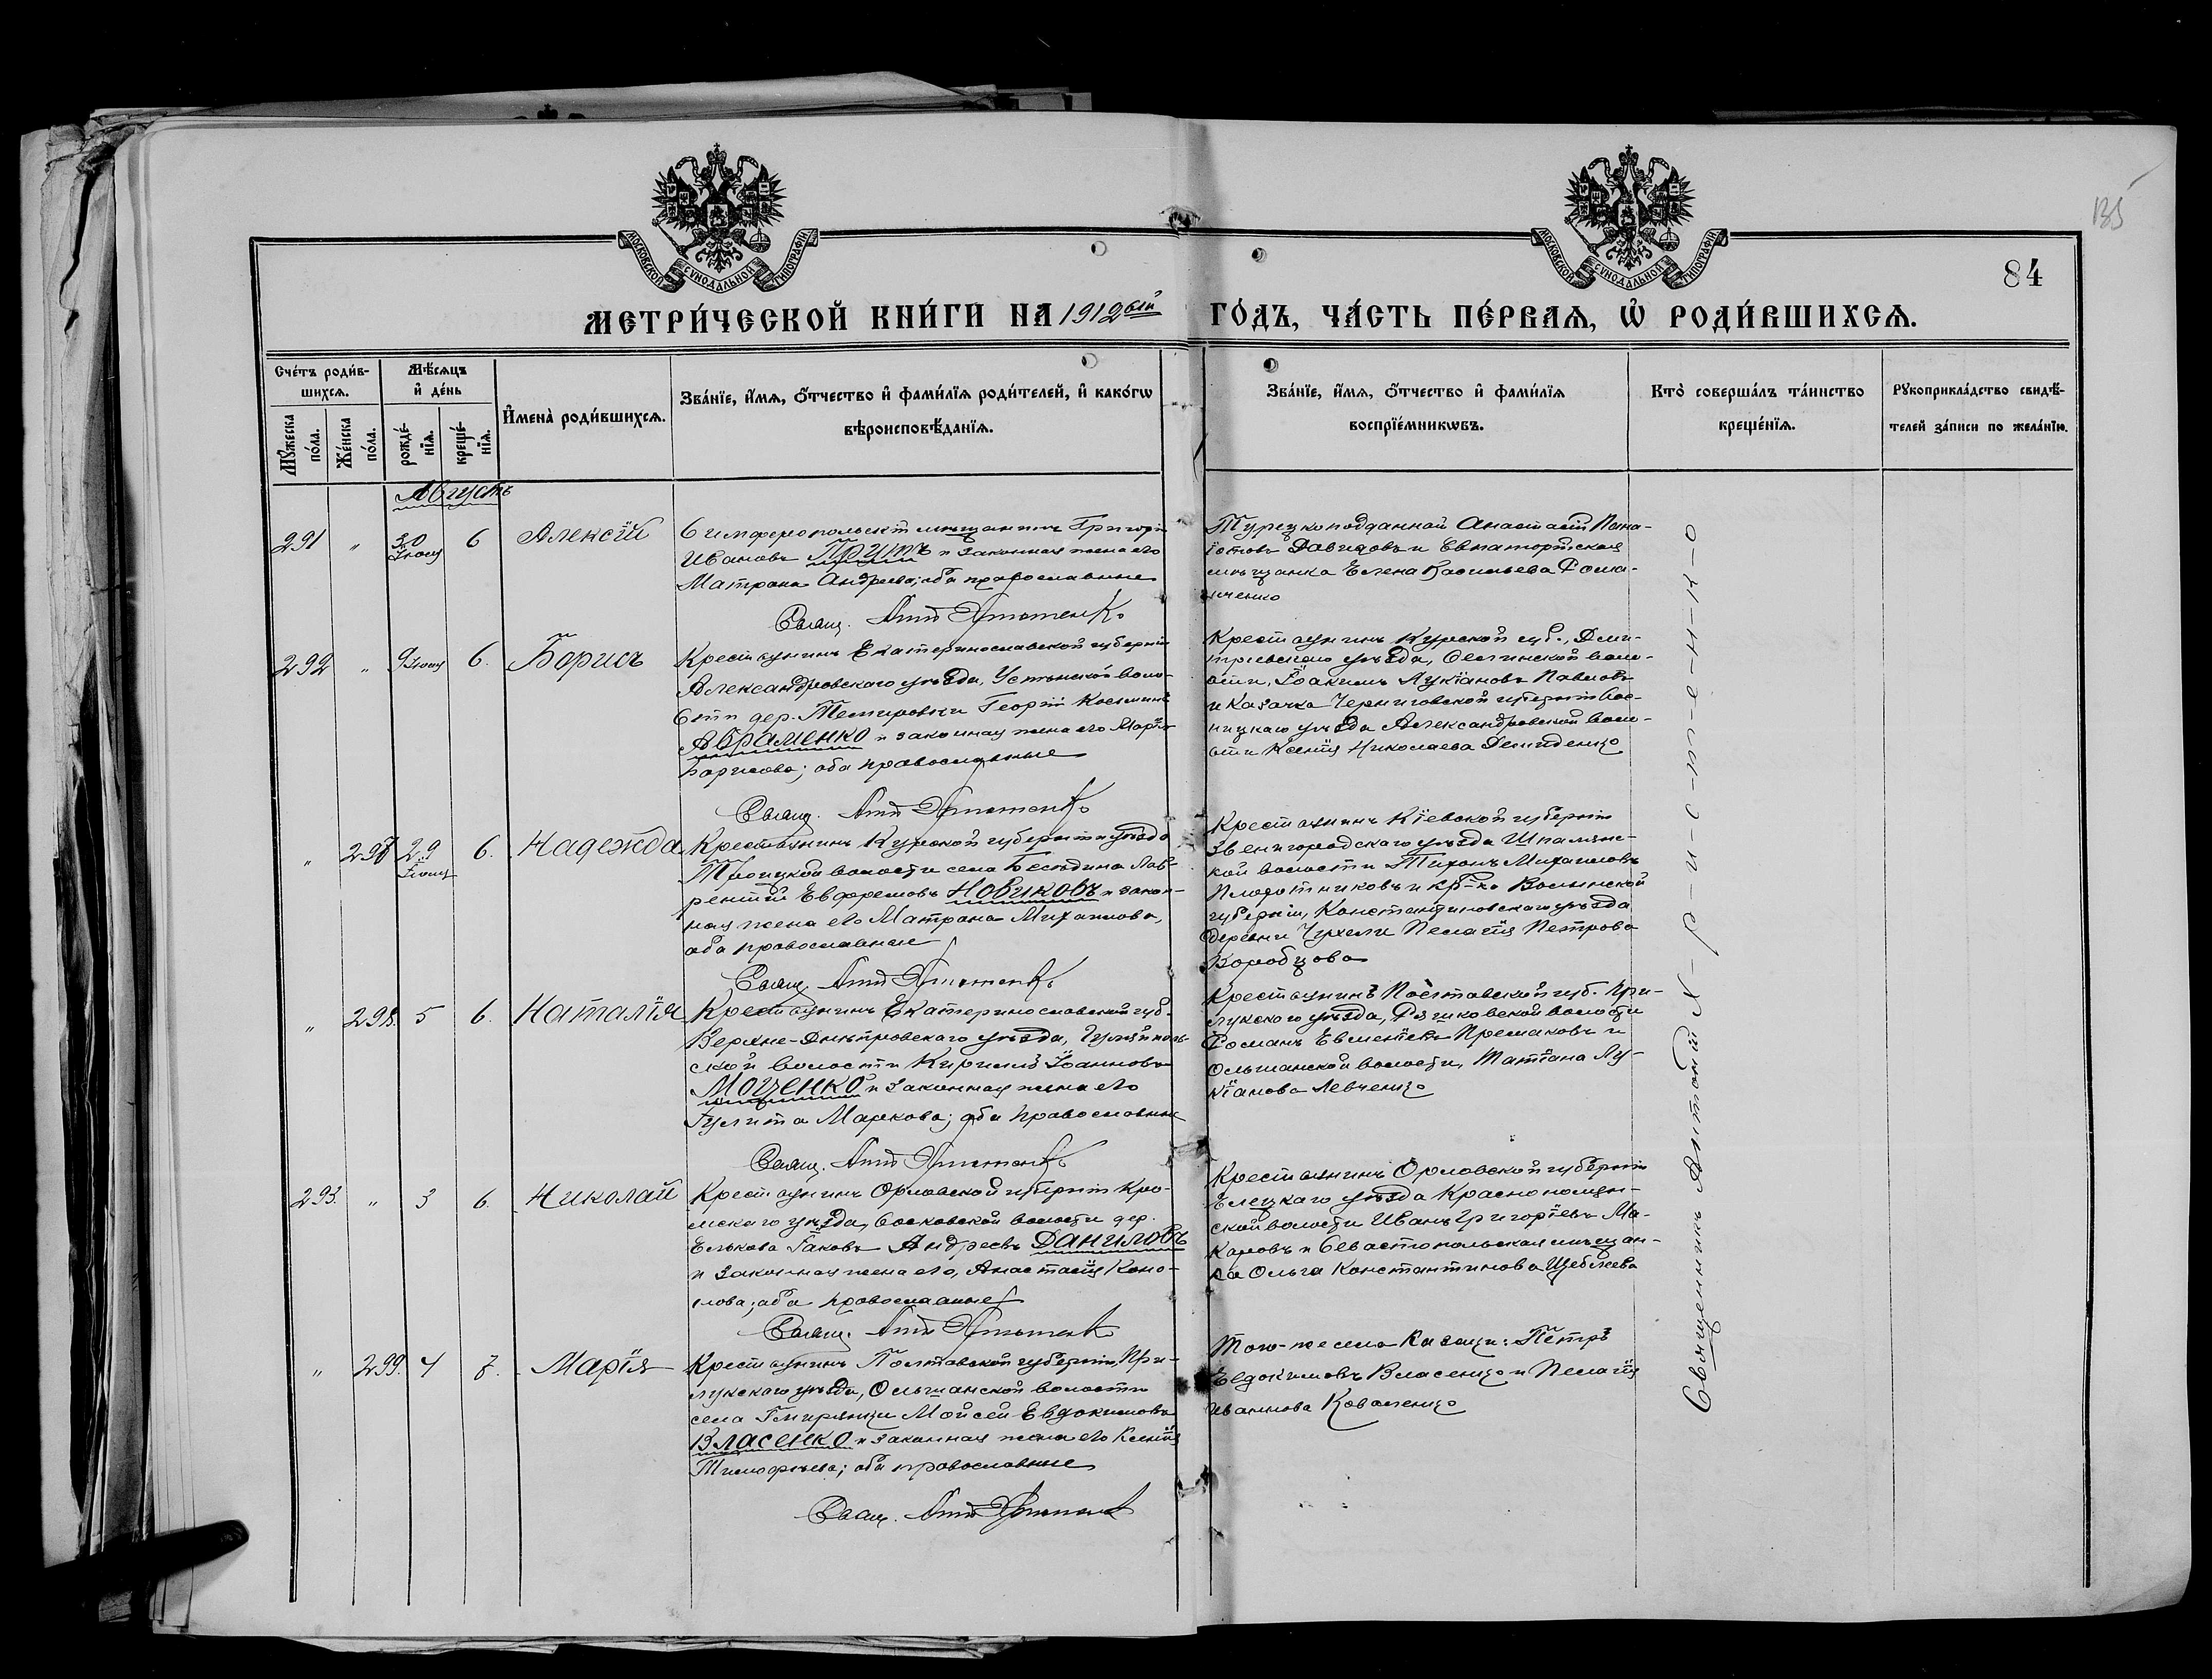 135
84
МОСКОВСКОЙ СѴНОДАЛЬНОЙ ТИПОГРАФІИ
МОСКОВСКОЙ СѴНОДАЛЬНОЙ ТИПОГРАФІИ
МЕТРИ́ЧЕСКОЙ КНИ́ГИ НА 1912ый ГО́ДЪ, ЧА́СТЬ ПЕ́РВАЯ, Ѡ РОДИ́ВШИХСЯ.
Сче́тъ роди́в-
шихся.
Мѣ́сяцъ
и де́нь
Му́жеска
по́ла.
Же́нска
по́ла.
рожде́-
нія.
креще́-
нія.
Имена̀ роди́вшихся.
Зва́ніе, и́мя, о́тчество и фами́лія роди́телей, и како́гѡ
вѣроисповѣ́данія.
Зва́ніе, и́мя, о́тчество и фами́лія
воспріе́мникѡвъ.
Кто̀ соверша́лъ та́инство
креще́нія.
Рукоприкла́дство свидѣ́-
телей за́писи по жела́нію.
Августъ
291 " 30 Іюля 6 Алексій
Симферопольскій мѣщанинъ Григорій
Ивановъ и законная жена его
Матрона Андреева; оба православные
Свящ. Ант Христенко
Турецкоподданной Анастасій Пана-
іотовъ Давидовъ и Евпаторійская
мѣщанка Елена Васильева Рома-
ченко
292 " 9 Іюля 6. Борисъ
Крестьянинъ Екатеринославской губерніи
Александровскаго уѣзда, воло-
сти дер. Темировки Георгій Косьминъ
Абраменко и законная жена его Марія
Борисова; оба православные
Свящ. Ант Христенко
Крестьянинъ Курской губ., Дми-
тріевскаго уѣзда, воло-
сти, Іоакимъ Лукіановъ Павловъ
и Казачка Черниговской губерніи Сос-
ницкаго уѣзда Александровской воло-
сти Ксенія Николаева Демиденко
" 297 29 Іюля 6. Надежда
Крестьянинъ Курской губерніи и уѣзда
Троицкой волости села Бесѣдина Лав-
рентій Евфремовъ Новиковъ и закон-
ная жена его Матрона Михаилова,
оба православные
Свящ. Ант Христенко
Крестьянинъ Кіевской губерніи
Звенигородскаго уѣзда Шполянс-
кой волости Тихонъ Михаиловъ
Плодотниковъ и кр-ка Волынской
губерніи, Константиновскаго уѣзда
деревни Пелагія Петрова
Воробцова
" 298. 5 6. Наталія
Крестьянинъ Екатеринославской губ.
Верхне-Днѣпровскаго уѣзда, Гуляйполь-
ской волости Кириллъ Іоанновъ
Моценко и законная жена его
Іулитта Маркова; оба православные
Свящ. Ант Христенко
Крестьянинъ Полтавской губ. При-
лукскаго уѣзда, волости
Романъ Евменіевъ и
Ольшанской волости, Татіана Лу-
кіанова Левченко
293. " 3 6. Николай
Крестьянинъ Орловской губерніи Кро-
мскаго уѣзда, Сосковской волости дер.
Елькова Іаковъ Андреевъ Даниловъ
и законная жена его, Анастасія Коно-
нова; оба православные
Свящ. Ант Христенко
Крестьянинъ Орловской губерніи
Елецкаго уѣзда
ской волости Иванъ Григорьевъ Ма-
каровъ и Севастопольская мѣщан-
ка Ольга Константинова Щеблева
" 299. 4 7. Марія
Крестьянинъ Полтавской губерніи, При-
лукскаго уѣзда, Ольшанской волости
села Гмирянки Моисей Евдокимовъ
Власенко и законная жена его Ксенія
Тимофѣева; оба православные
Свящ. Ант Христенко
Того-же села Казаки: Петръ
Евдокимовъ Власенко и Пелагія
Иванова Коваленко
Священникъ Антоній Х-р-и-с-т-е-н-к-о